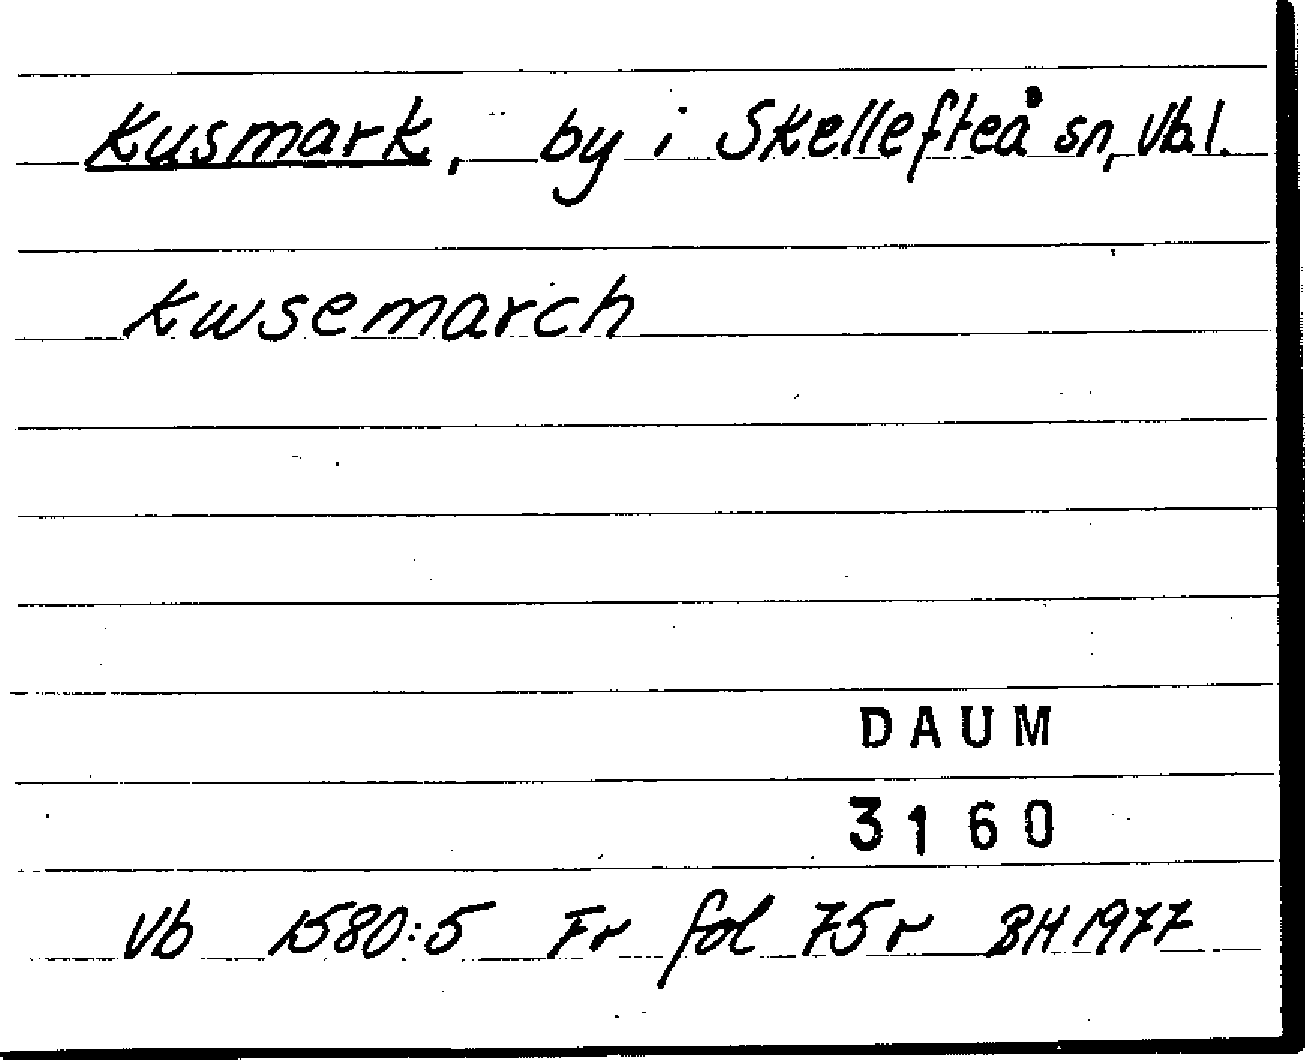 Kusmark, by i Skellefteå sn, Vb.l.
Kwsemarch
DAUM
3160
Vb 1580:5 Fr fol 75 r BH 1977